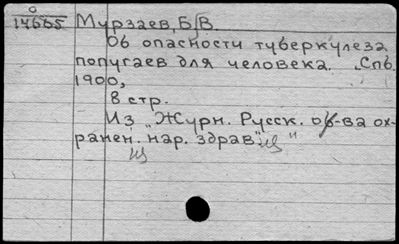 0
14665 Мурзаев, Б. В.
Об опасности туберкулеза
попугаев для человека. Спб.
1900,
8 стр.
Из „Журн. Русск. об-ва ох-
ранен. нар. здрав"